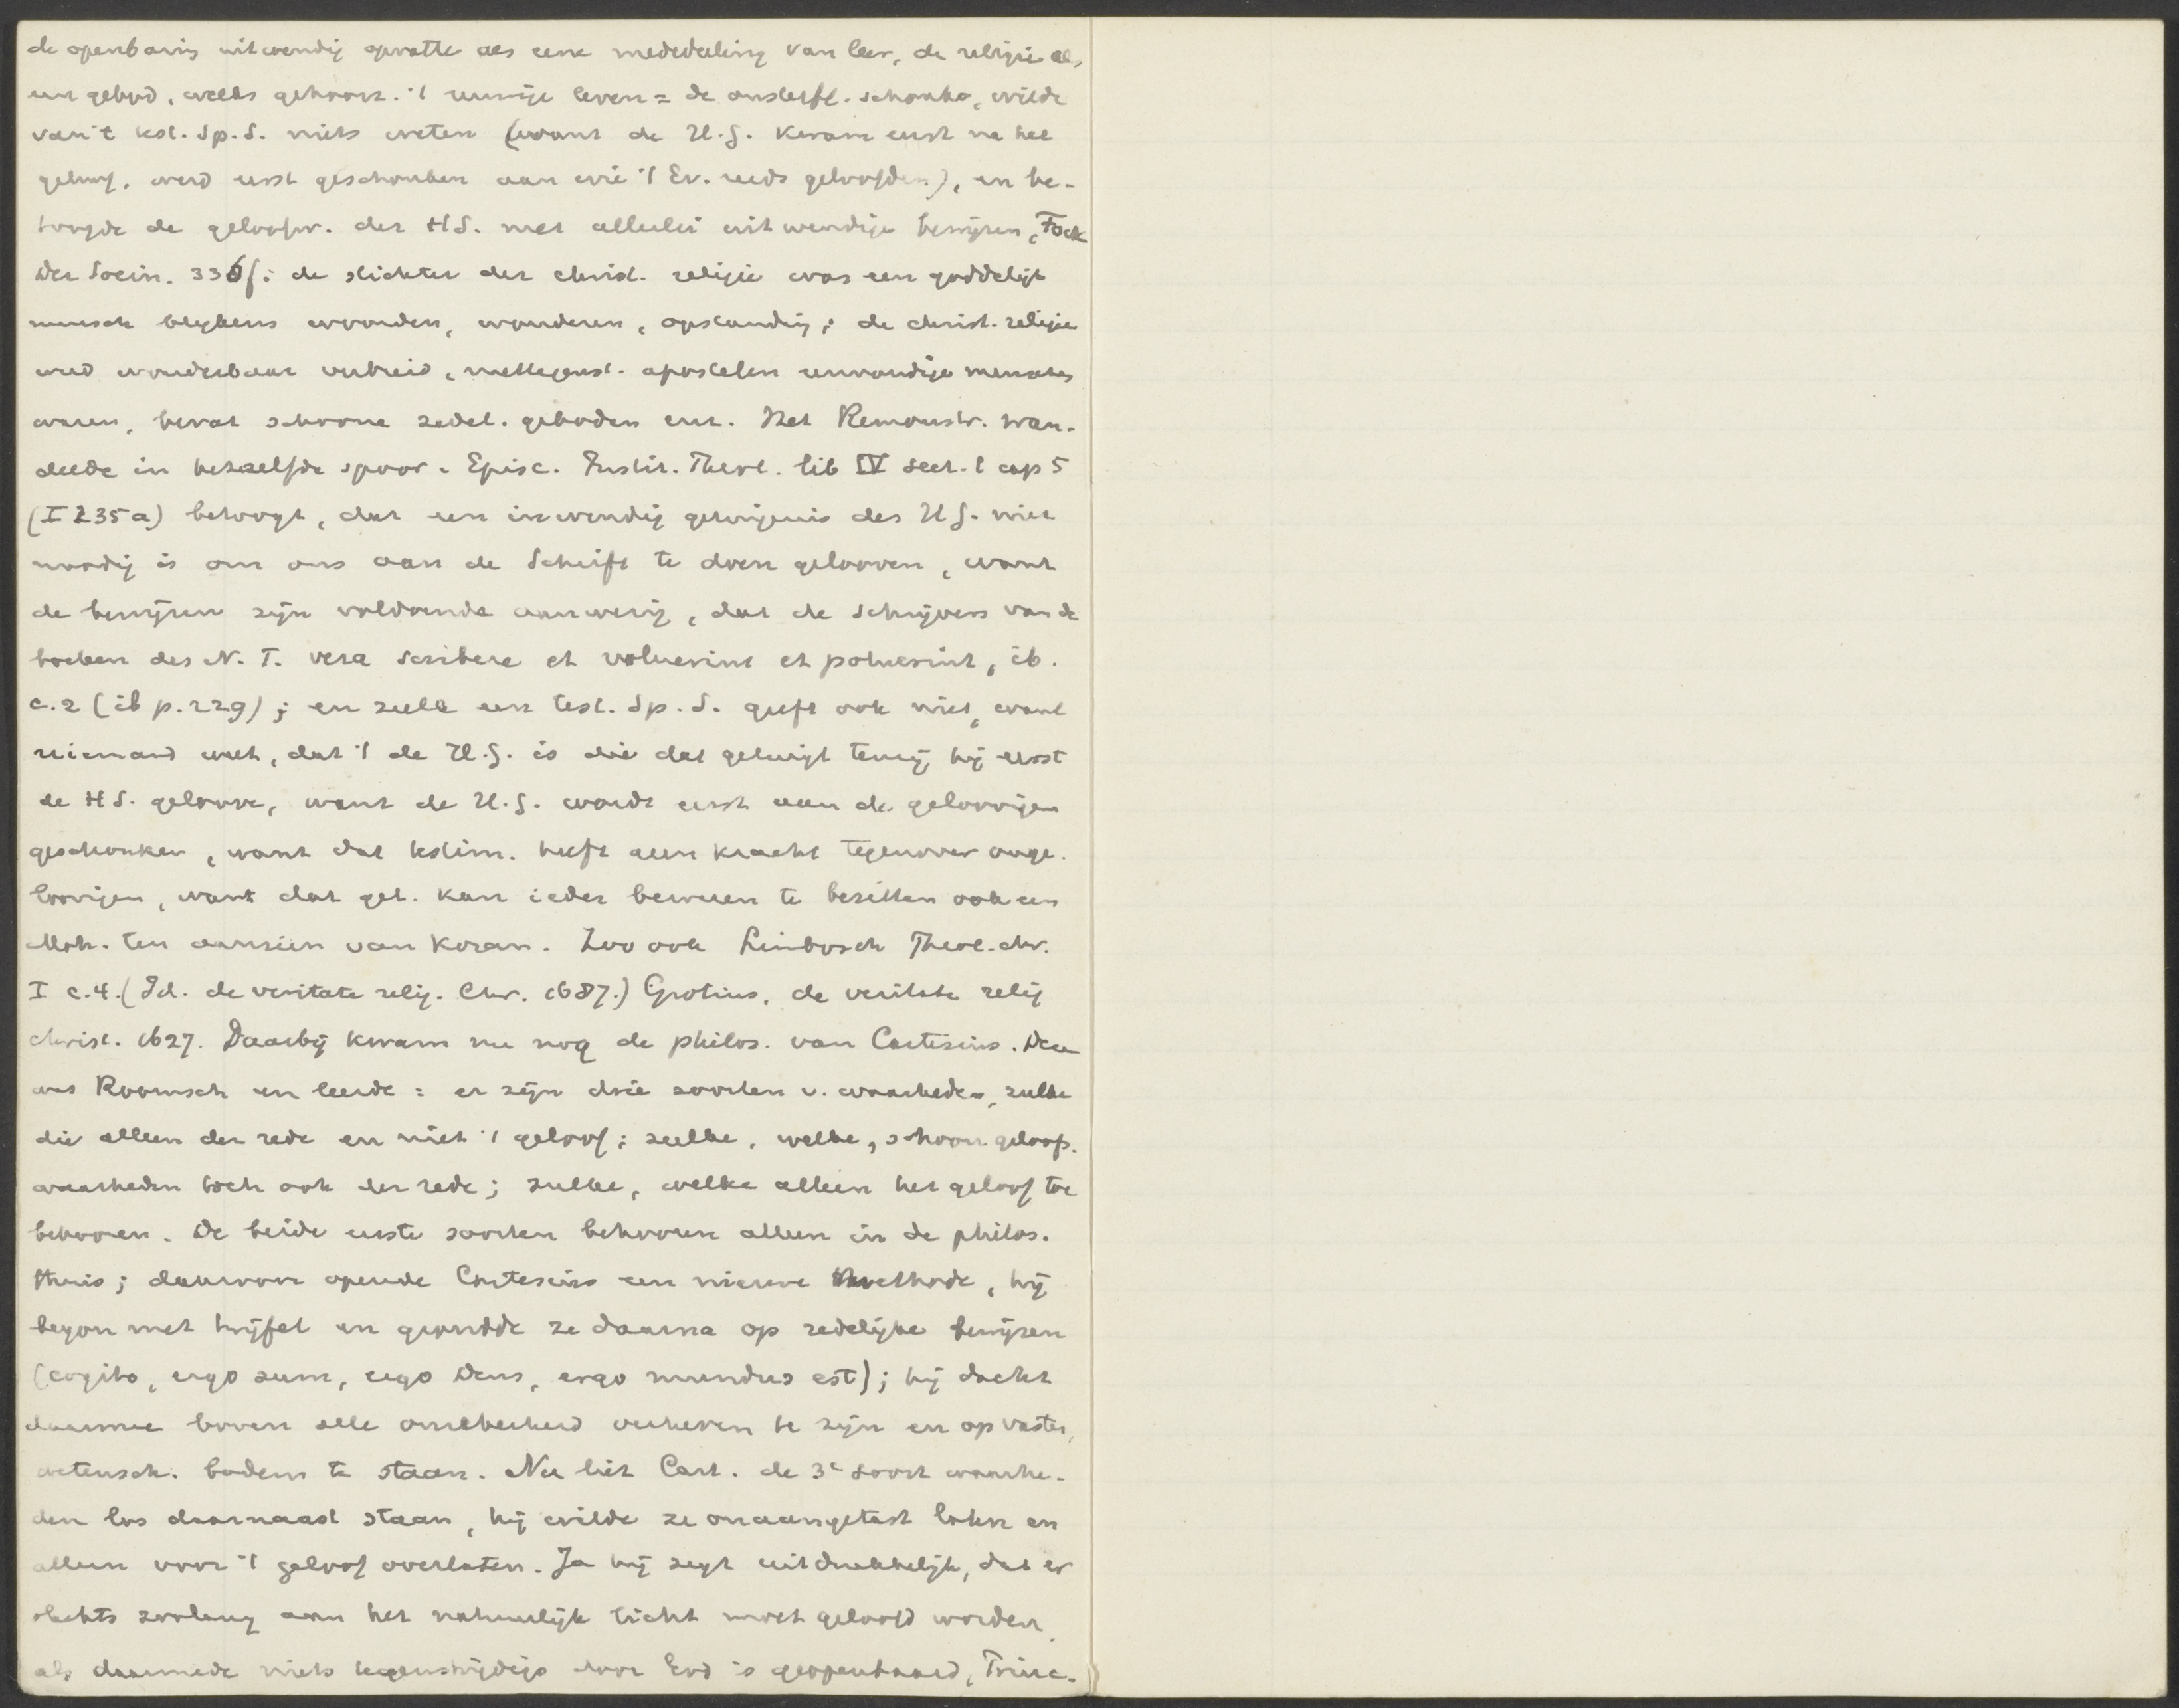 de openbaring uitwendig opvatte als eene mededeeling van leer, de religie als
een gebod, welks gehoorz. 't eeuwige leven = de onsterfl. schonk, wilde
van 't test. Sp. S. niets weten (want de H.G. kwam eerst na het
geloof, werd eerst geschonken aan wie 't Ev. reeds geloofden), en be-
toogde de geloofw. der HS. met allerlei uitwendige bewijzen, Fock
Der Socin. 336 f: de stichter der christ. religie was een goddelijk
mensch blijkens woorden, wonderen, opstanding; de christ. religie
werd wonderbaar verbreid, niettegenst. apostelen eenvoudige menschen
waren, bevat schoone zedel. geboden enz. Het Remonstr. wan-
delde in hetzelfde spoor. Episc. Instit. Theol. lib IV sect. 1 cap 5
(I 235a) betoogt, dat een inwendig getuigenis des H.G. niet
noodig is om ons aan de Schrift te doen gelooven, want
de bewijzen zijn voldoende aanwezig, dat de schrijvers van de
boeken des N. T. vera scribere et voluerint et potuerint, ib.
c. 2 (ib p. 229); en zulk een test. Sp. S. geeft ook niet, want
niemand weet, dat 't de H.G. is die dat getuigt tenzij hij eerst
de HS. geloove, want de H.G. wordt eerst aan de geloovigen
geschonken, want dat testim. heeft geen kracht tegenover onge-
loovigen, want dat get. kan ieder beweren te bezitten ook een
Moh. ten aanzien van Koran. Zoo ook Limborch Theol. chr.
I c. 4. (Id. de veritate relig. Chr. 1687.) Grotius, de veritate relig
christ. 1627. Daarbij kwam nu nog de philos. van Cartesius. Deze
was Roomsch en leerde: er zijn drie soorten v. waarheden, zulke
die alleen der rede en niet 't geloof; zulke, welke, schoon geloofs-
waarheden toch ook der rede; zulke, welke alleen het geloof toe
behooren. De beide eerste soorten behooren alleen in de philos.
thuis; daarvoor opende Cartesius een nieuwe methode, hij
begon met twijfel en grondde ze daarna op redelijke bewijzen
(cogito, ergo sum, ergo Deus, ergo mundus est); hij dacht
daarmee boven alle onzekerheid verheven te zijn en op vasten,
wetensch. bodem te staan. Nu liet Cart. de 3e soort waarhe-
den los daarnaast staan, hij wilde ze onaangetast laten en
alleen voor 't geloof overlaten. Ja hij zegt uitdrukkelijk, dat er
slechts zoolang aan het natuurlijk licht moet geloofd worden,
als daarmede niets tegenstrijdigs door God is geopenbaard, Princ.